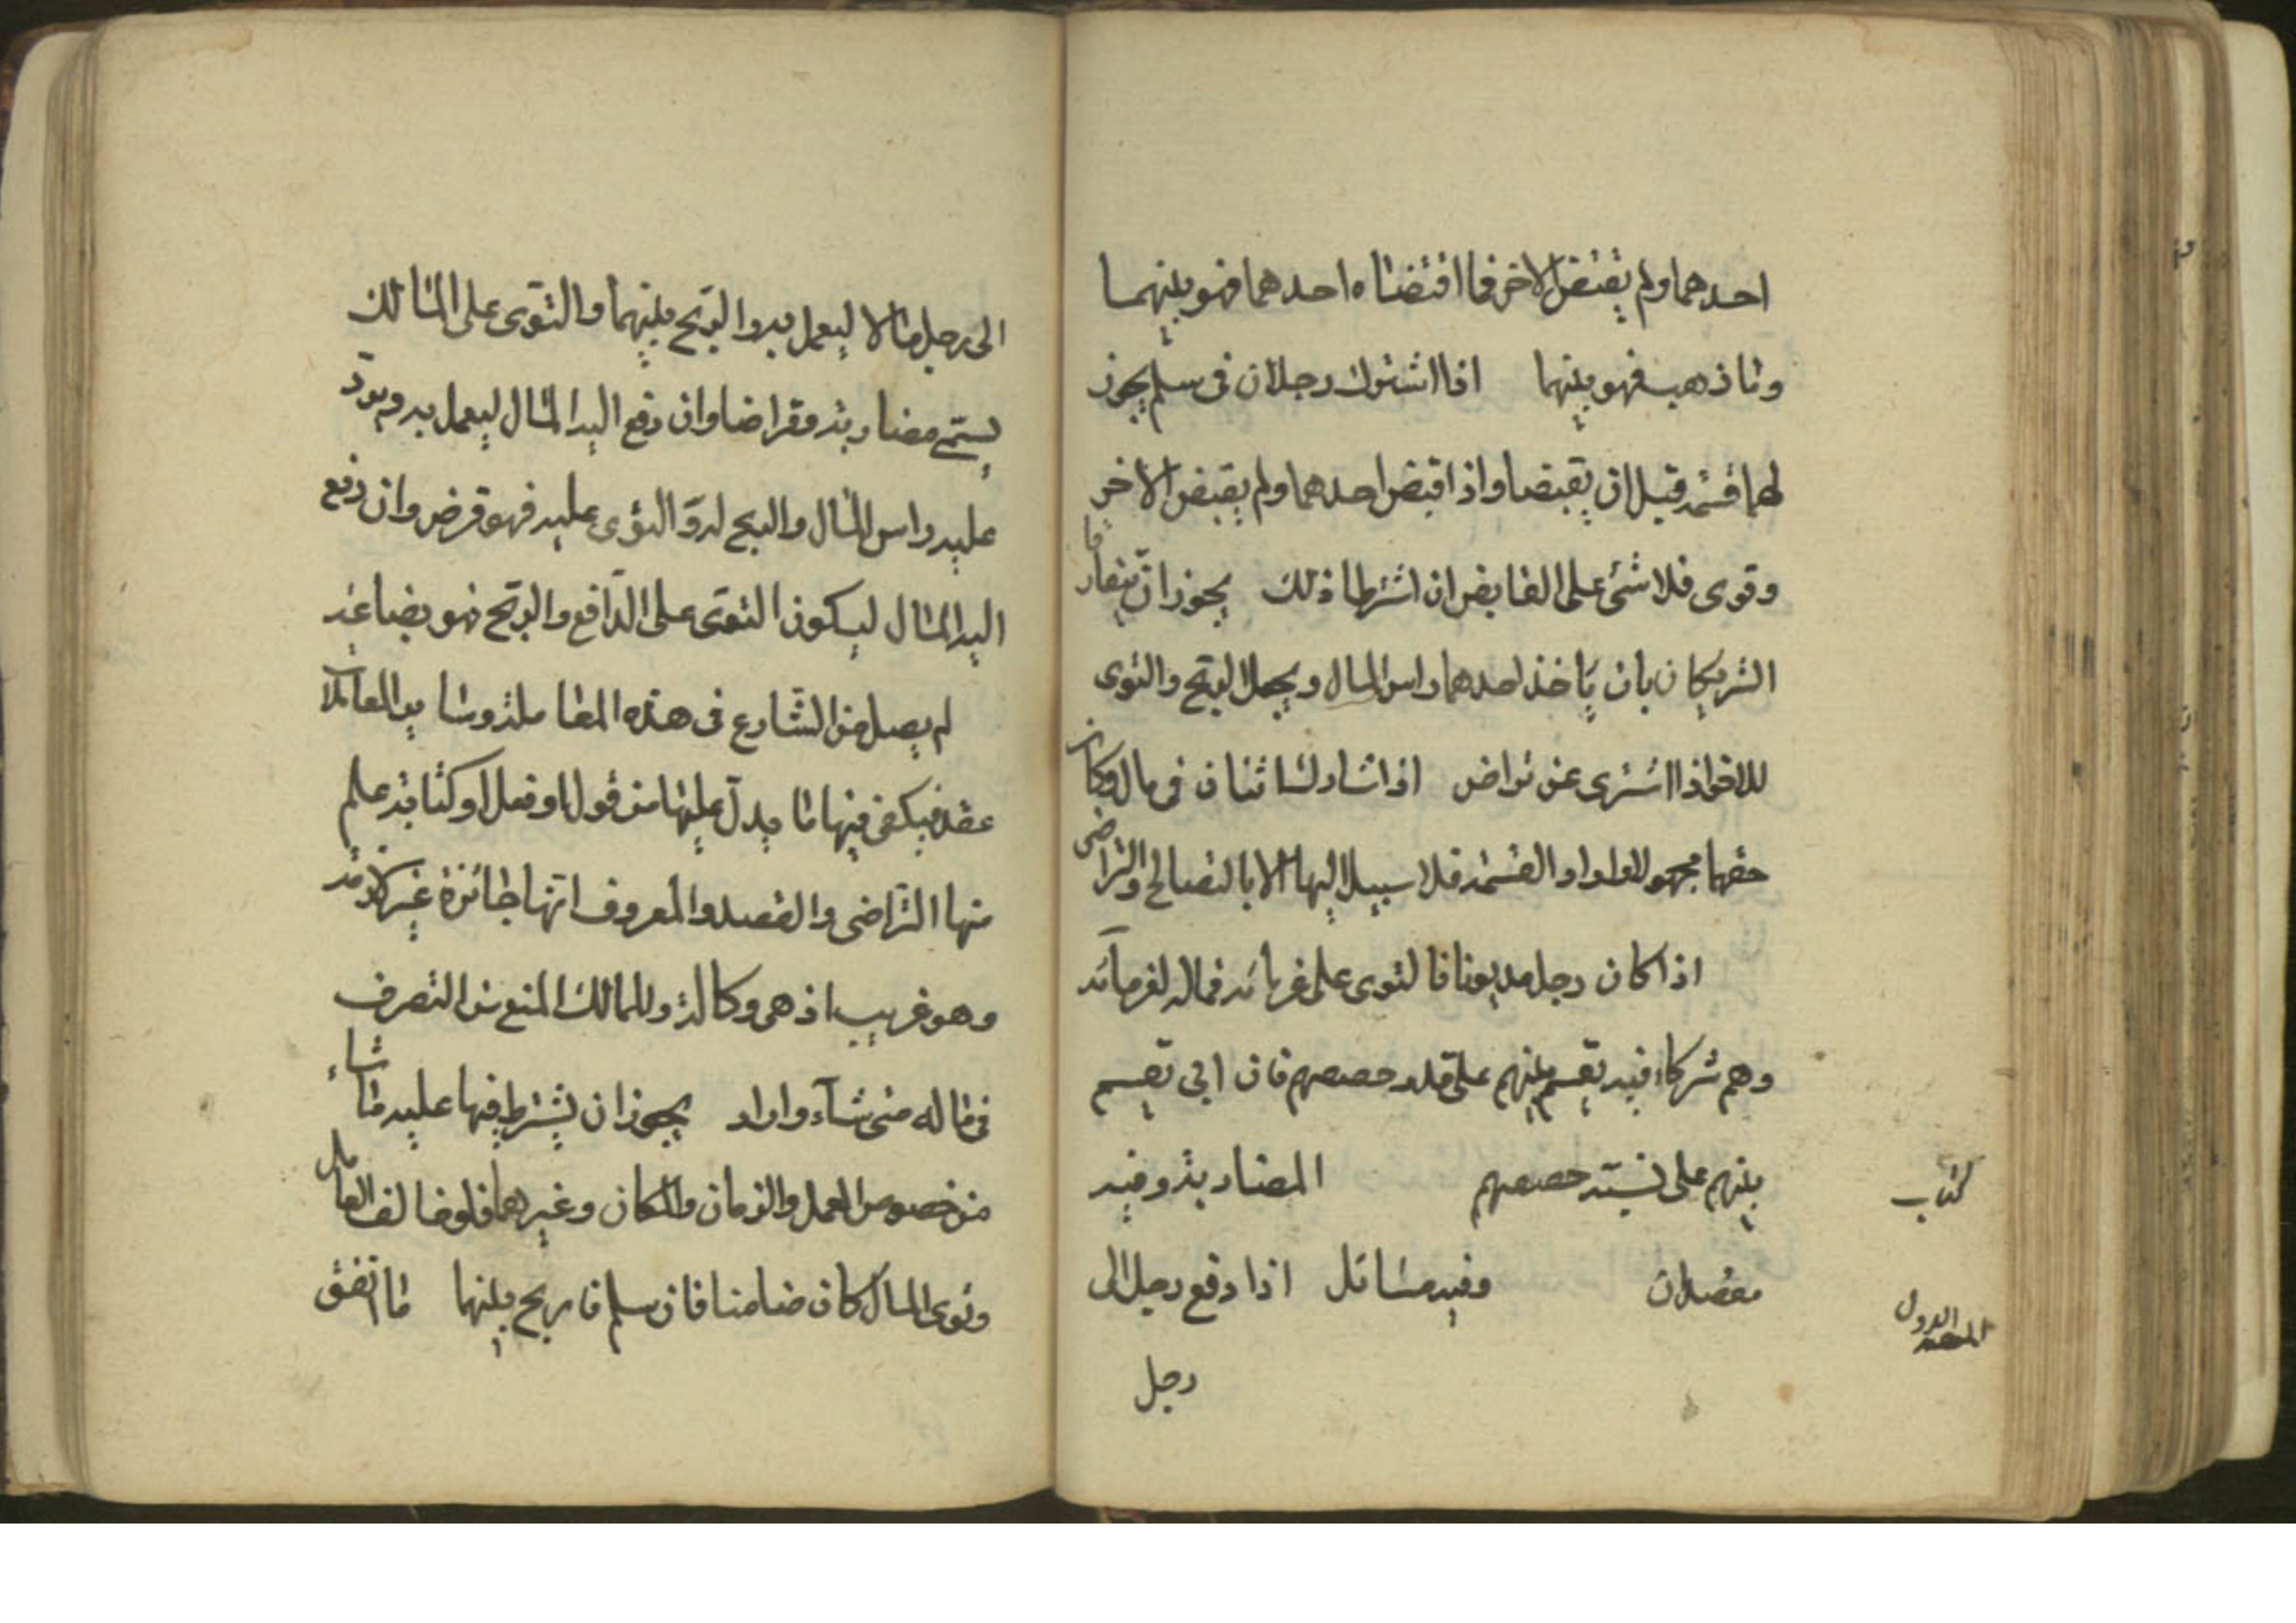 احدهما ولم يقتض الاخر فما اقتضاه احدهما فهو بينهما
وما ذهب فهو بينهما اذا اشترك رجلان في سلم يجوز
لهما قسمته قبل ان يقبضا واذا قبض احدهما ولم يقبض الاخر
وتوى فلا شئ على القابض ان اشترطا ذلك يجوز ان يتفارقا
الشريكان بان ياخذ احدهما راس المال ويجعل الربح والتوى
للاخر اذا اشترى عن تراض اذا تشارك اثنان في مال وكان
حقهما مجهولا وارادا القسمة فلا سبيل اليها الا بالتصالح والتراضى
اذا كان رجل مديونا فالتوى على غرمائه فماله لغرمائه
وهم شركاء فيه يقسم بينهم على قدر حصصهم فان ابى تقسم
بينهم على نسبة حصصهم المضاربة وفيه
كتاب
مقصدان وفيه مسائل اذا دفع رجل الى
المقصد الاول
رجل
الى رجل مالا ليعمل به والربح بينهما والتوى على المالك
يسمى مضاربة وقراضا وان دفع اليه المال ليعمل به ويرد
عليه راس المال والربح له والتوى عليه فهو قرض وان دفع
اليه المال ليكون التوى على الدافع والربح فهو بضاعة
لم يصل من الشارع في هذه المعاملة وسائر المعاملات
عقد فيكفى فيها ما يدل عليها من قول او فعل او كتابة علم
منها التراضى والقصد والمعروف انها جائزة غير لازمة
وهو غريب اذ هى وكالة وللمالك المنع من التصرف
في ماله متى شآء واراد يجوز ان يشترط فيها عليه ما شاء
من خصوص العمل والزمان والمكان وغيرهما فلو خالف العامل
وتوى المال كان ضامنا فان سلم فا ربح بينهما ما اتفق